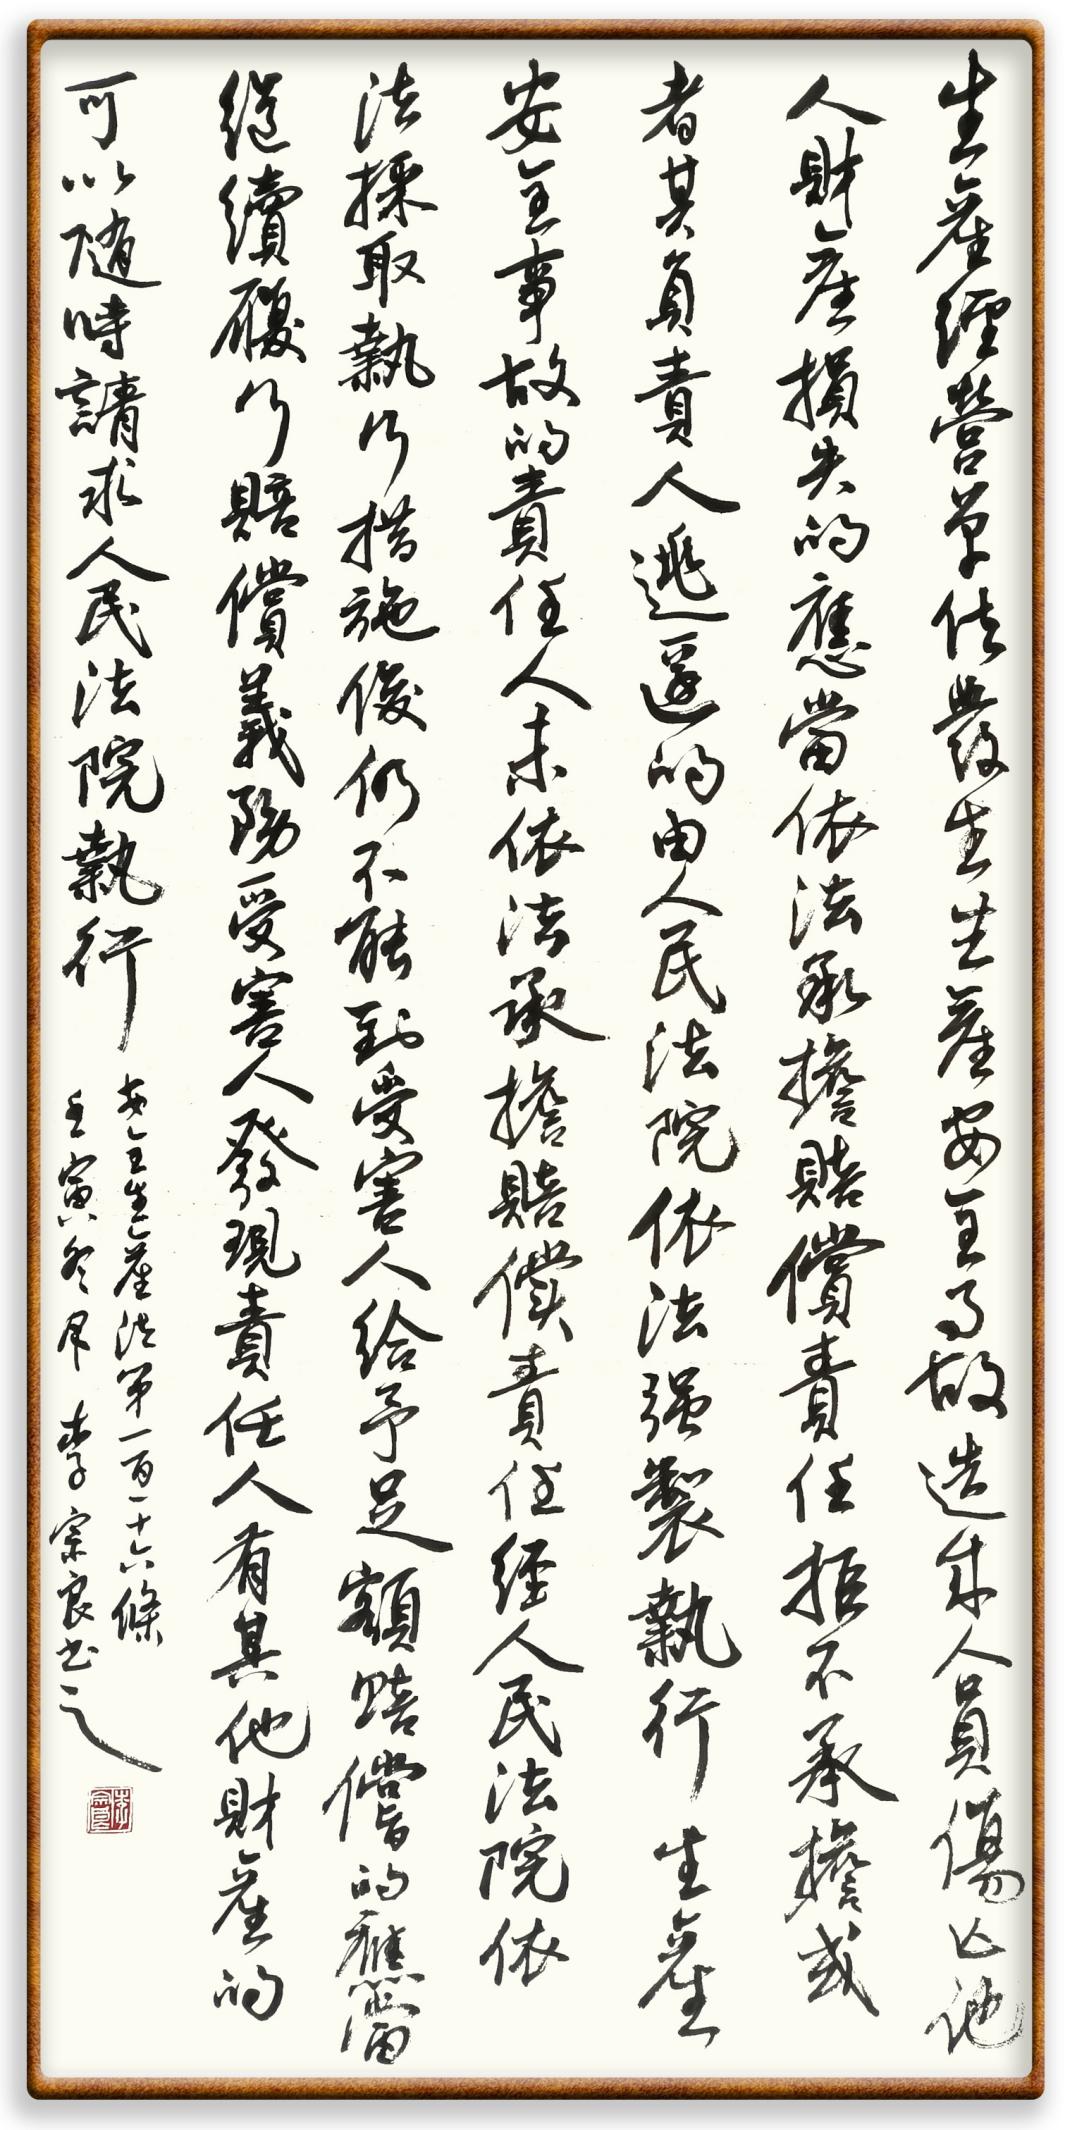 生產經營單位發生生產安全事故造成人員傷亡他
人財產損失的應當依法承擔賠償責任拒不承擔或
者其負責人逃遁的由人民法院依法强製執行生產
安全事故的責任人未依法承擔賠償責任經人民法院依
法採取執行措施後仍不能到受害人給予足額賠償的應當
繼續履行賠償義務受害人發現責任人有其他財產的
可以隨時請求人民法院執行
安全生產法第一百一十六條
壬寅冬月李宗良书之